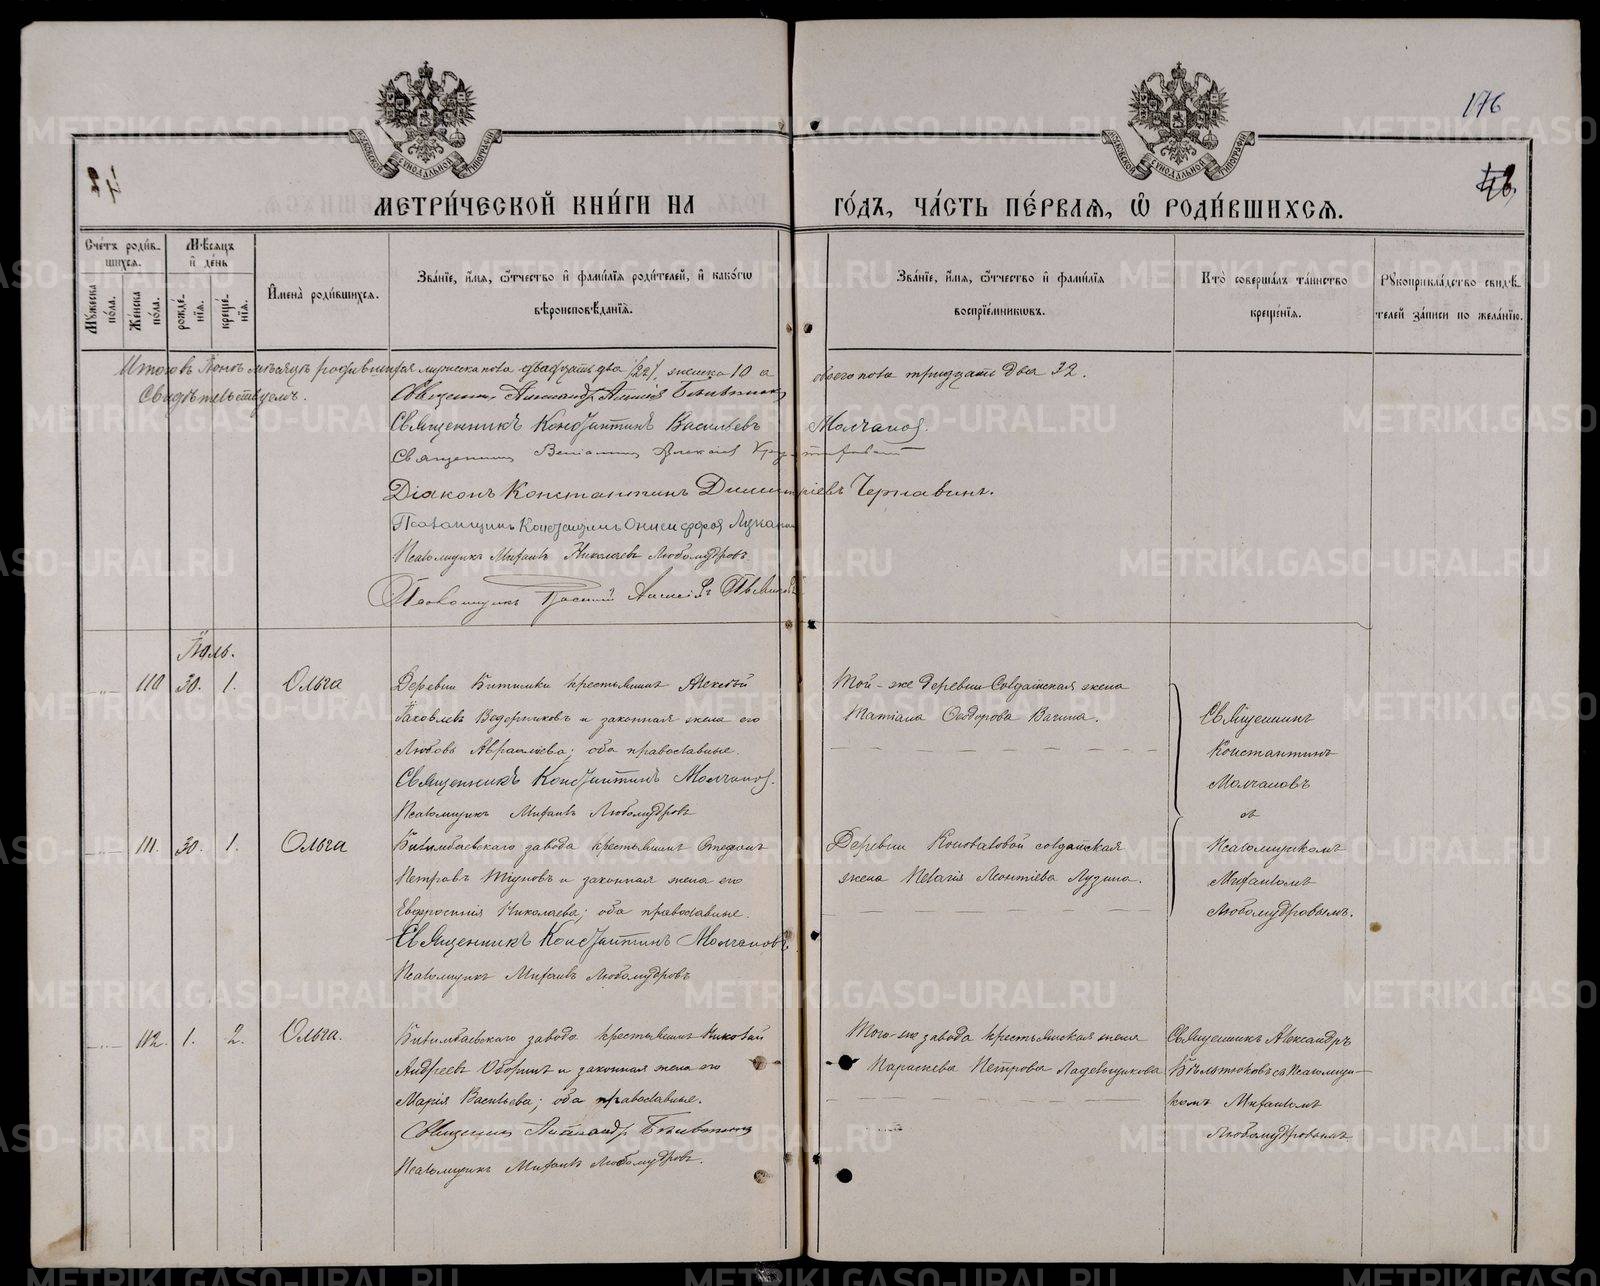 176
МОСКОВСКОЙ СѴНОДАЛЬНОЙ ТИПОГРАФІИ
МОСКОВСКОЙ СѴНОДАЛЬНОЙ ТИПОГРАФІИ
МЕТРИ́ЧЕСКОЙ КНИ́ГИ НА ГО́ДЪ, ЧА́СТЬ ПЕ́РВАЯ, Ѡ РОДИ́ВШИХСЯ.
Сче́тъ роди́в-
шихся.
Мꙋ́жеска по́ла.
Же́нска по́ла.
Мѣ́сяцъ и де́нь
рожде́-
нїя.
креще́-
нїя.
Имена̀ роди́вшихся.
Зва́нїе, и́мя, ѻ́тчество и фами́лїя роди́телей, и како́гѡ
вѣроисповѣ́данїя.
Зва́нїе, и́мя, ѻ́тчество и фами́лїя
воспрїе́мникѡвъ.
Кто̀ соверша́лъ та́инство
креще́нїя.
Рꙋкоприкла́дство свидѣ́-
телей за́писи по жела́нїю.
Итого въ Іюнѣ мѣсяцѣ родившихся мужеска пола двадцать два (22), женска 10 а обоего пола тридцать два 32.
Свидѣтельствуемъ.
Священникъ Александръ Алексѣевъ
Священникъ Константинъ Васильевъ Молчановъ.
Священникъ Веніаминъ Алексѣевъ
Діаконъ Константинъ Димитріевъ Чернавинъ.
Псаломщикъ Константинъ Онисифоровъ
Псаломщикъ Михаилъ Николаевъ Любомудровъ
Псаломщикъ
Іюль.
110 30. 1. Ольга
Деревни Битимки крестьянинъ Алексѣй
Яковлевъ Ведерниковъ и законная жена его
Любовь Авраамова; оба православные.
Священникъ Константинъ Молчановъ.
Псаломщикъ Михаилъ Любомудровъ
Той-же деревни Солдатская жена
Татіана Ѳеодорова Вагина.
Священникъ
Константинъ
Молчановъ
съ
Псаломщикомъ
Михаиломъ
Любомудровымъ.
111. 30. 1. Ольга
Билимбаевскаго завода крестьянинъ Стефанъ
Петровъ Тіуновъ и законная жена его
Евфросинія Николаева; оба православные.
Священникъ Константинъ Молчановъ.
Псаломщикъ Михаилъ Любомудровъ
Деревни Коноваловой солдатская
жена Пелагія Леонтіева Лузина.
112. 1. 2. Ольга.
Билимбаевскаго завода крестьянинъ Николай
Андреевъ Оборинъ и законная жена его
Марія Васильева; оба православные.
Священникъ Александръ
Псаломщикъ Михаилъ Любомудровъ.
Того-же завода крестьянская жена
Параскева Петрова Ладейщикова
Священникъ Александръ
съ Псаломщи-
комъ Михаиломъ
Любомудровымъ
METRIKI.GASO-URAL.RU